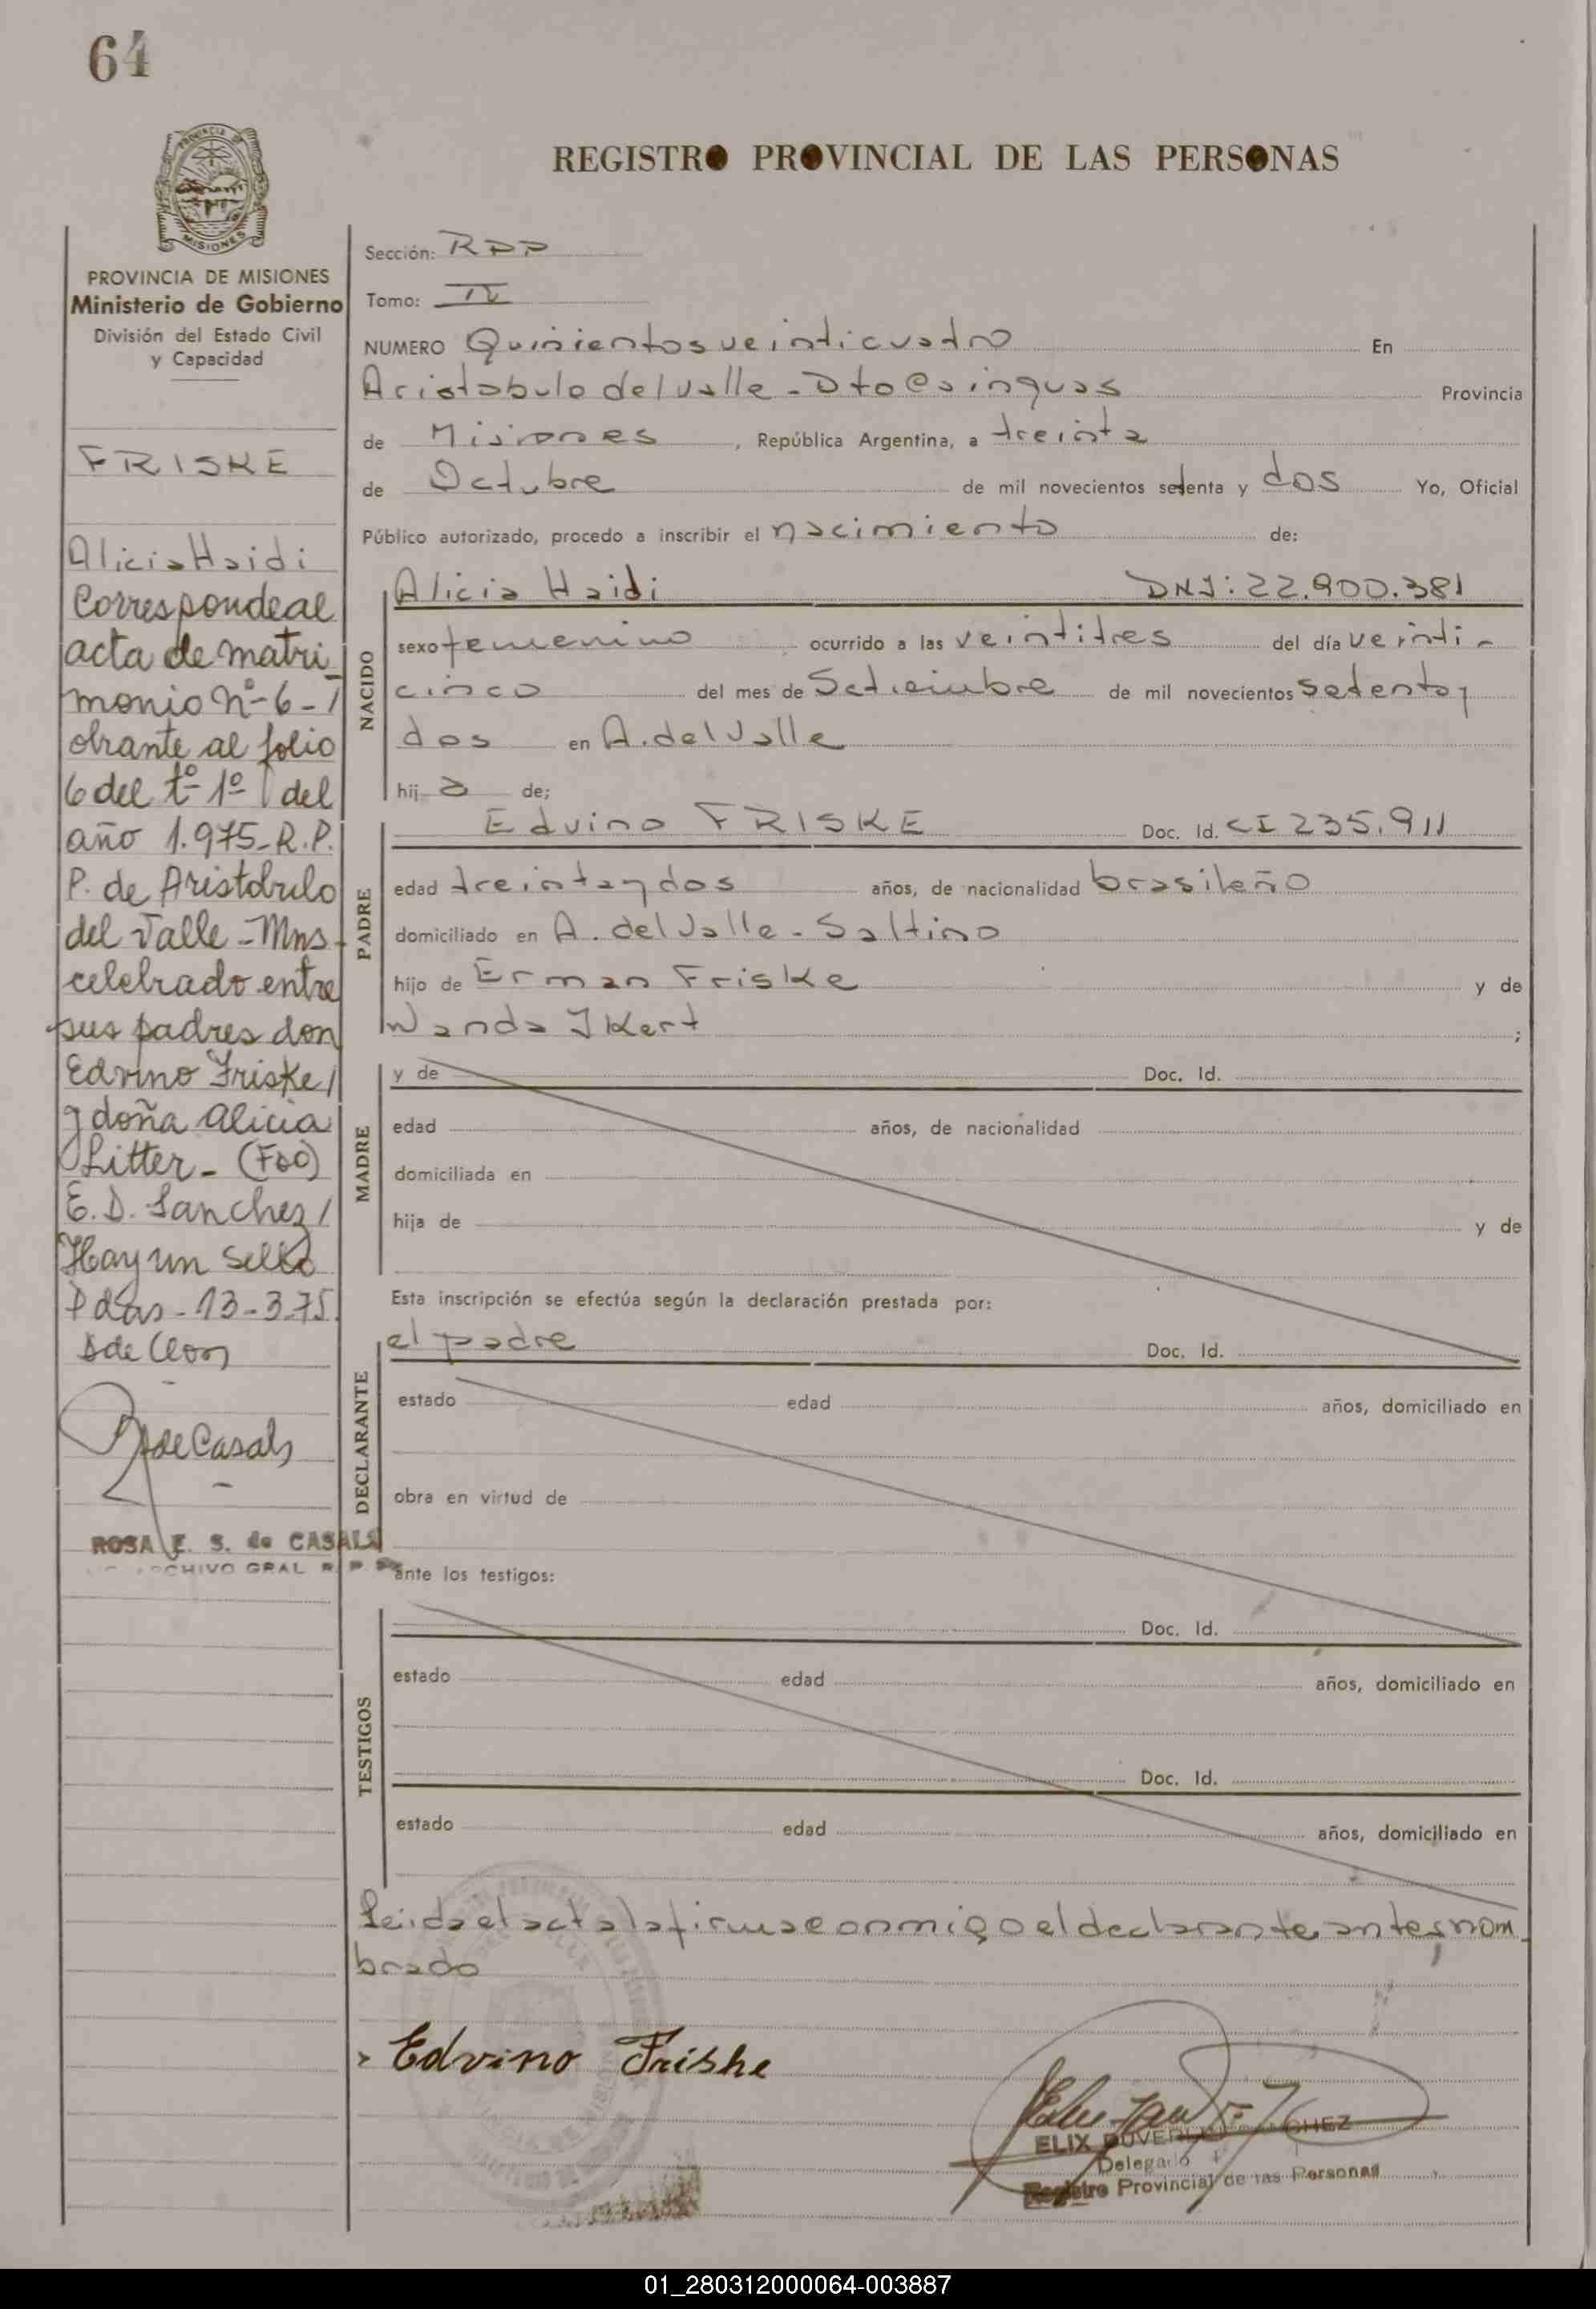 64
PROVINCIA DE MISIONES
REGISTRO PROVINCIAL DE LAS PERSONAS
PROVINCIA DE MISIONES
Ministerio de Gobierno
División del Estado Civil
y Capacidad
FRISKE
Alicia Haidi
Corresponde al
acta de matri
monio nº-6-/
obrante al folio
6 del tº- 1º del
año 1.975-R.P.
P. de Aristobulo
del Valle-Mns-
celebrado entre
sus padres don
Edvino Friske/
y doña Alicia
Litter-(Fdo)
E. D. Sanchez/
Hay un sello
Pdas-13-3-75.
de Casals
ROSA E. S. de CASALS
ARCHIVO GRAL R. P. P.
Sección: RPP
Tomo:
NUMERO Quinientos veinticuatro En
Aristobulo del Valle - Dto Cainguas Provincia
de Misiones, República Argentina, a treinta
de Octubre de mil novecientos setenta y dos Yo, Oficial
Público autorizado, procedo a inscribir el nacimiento de:
NACIDO
Alicia Haidi DNI: 22.900.381
sexo femenino ocurrido a las veintitres del día veinti-
cinco del mes de Setiembre de mil novecientos setenta y
dos en A. del Valle
hij a de;
PADRE
Edvino FRISKE Doc. Id. CI 235.911
edad treinta y dos años, de nacionalidad brasileño
domiciliado en A. del Valle - Saltino
hijo de Erman Friske y de
Wanda Ikert ;
MADRE
y de Doc. Id.
edad años, de nacionalidad
domiciliada en
hija de y de
Esta inscripción se efectúa según la declaración prestada por:
DECLARANTE
el padre Doc. Id.
estado edad años, domiciliado en
obra en virtud de
ante los testigos:
TESTIGOS
Doc. Id.
estado edad años, domiciliado en
Doc. Id.
estado edad años, domiciliado en
Leida el acta la firma conmigo el declarante antes nom
brado
Edvino Friske
ELIX DUVER SANCHEZ
Delegado
Registro Provincial de las Personas
01_280312000064-003887